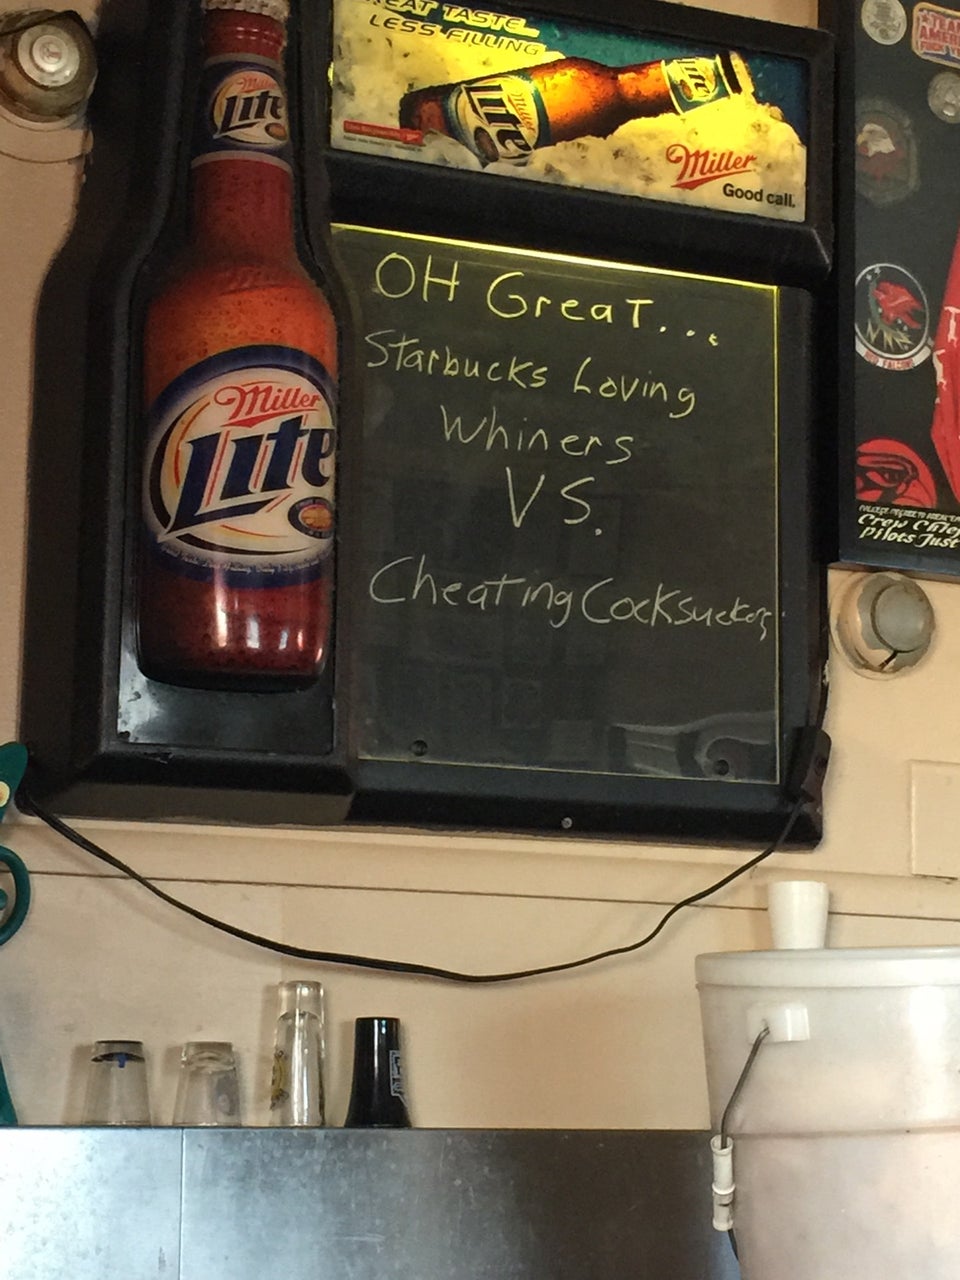 GREAT TASTE...
LESS FILLING
Lite
Miller
Lite
Lite
Miller
Good call.
Miller
Lite
OH Great...
Starbucks Loving
Whiners
VS.
Cheating Cocksuckers
TEAM
AMERICA
RED FALCONS
Crew Chief
Pilots Just